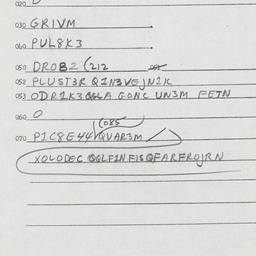 020
030 GRIVM
040 PUL8K3
050 DROB2 (212
052 PLUST3R Q1N3VEJN2K
053 ODR1K3 GONC UN3M FETN
060 O
(085
070 P1C8E44 QVAR3M
XOLODEC